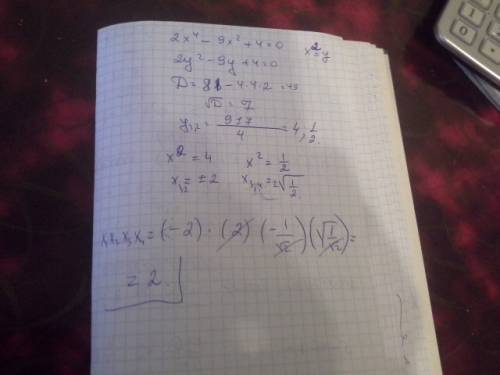 2x⁴ - 9x² + 4 = 0
x² = y
2y² - 9y + 4 = 0
D = 81 - 4·4·2 = 49
√D = 7
y₁,₂ = (9±7)/4 = 4, 1/2.
x² = 4 x² = 1/2
x₁,₂ = ±2 x₃,₄ = ±√(1/2)
x₁ x₂ x₃ x₄ = (-2) · (2) (-1/√2) (√1/√2) =
= 2